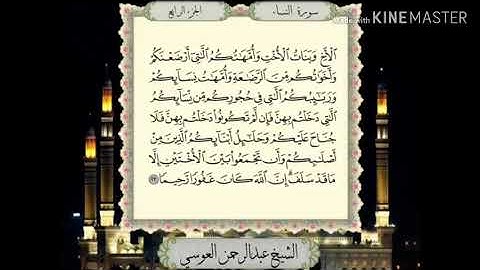 سورة النساء
الجزء الرابع
Made with KINEMASTER
الأخ وبنات الأخت وأمهاتكم التي أرضعنكم
وأخواتكم من الرضاعة وأمهات نسائكم
وربائبكم التي في حجوركم من نسائكم
التي دخلتم بهن فإن لم تكونوا دخلتم بهن فلا
جناح عليكم وحلائل أبنائكم الذين من
أصلابكم وأن تجمعوا بين الأختين إلا
ما قد سلف إن الله كان غفورا رحيما ٢٣
الشيخ عبدالرحمن العوسي